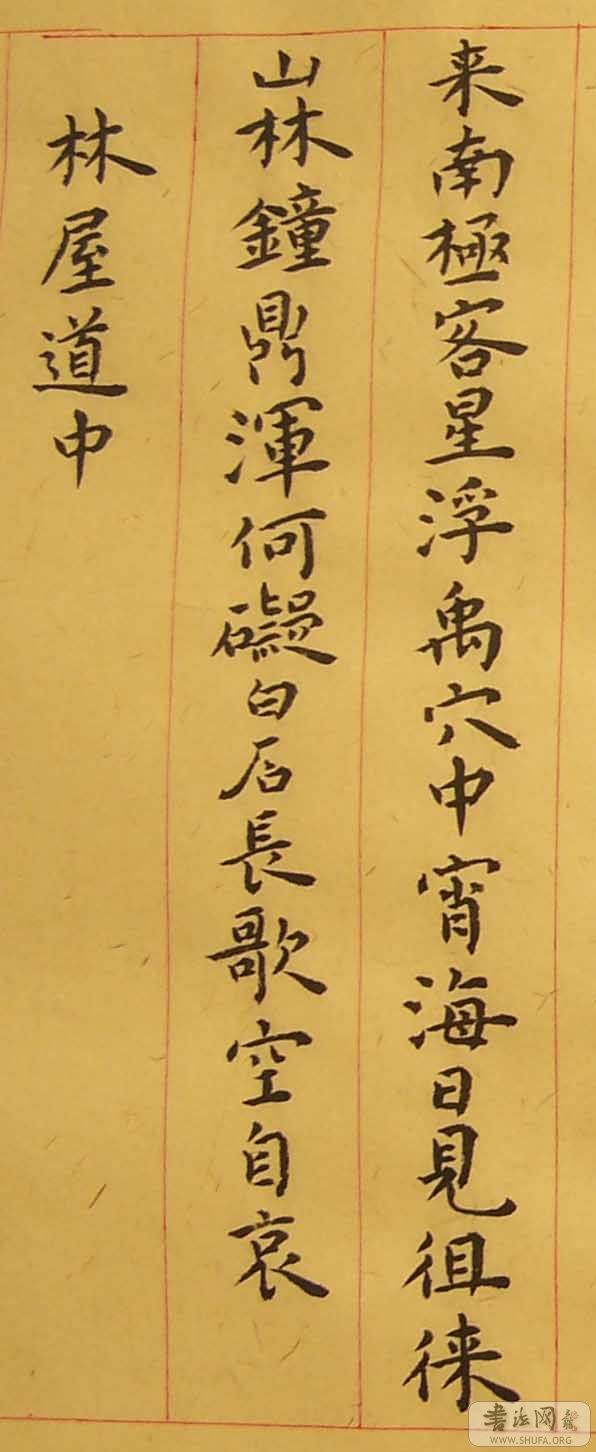 来南極客星浮禹穴中宵海日見徂徠
山林鐘鼎渾何礙白石長歌空自哀
林屋道中
書法网
WWW.SHUFA.ORG